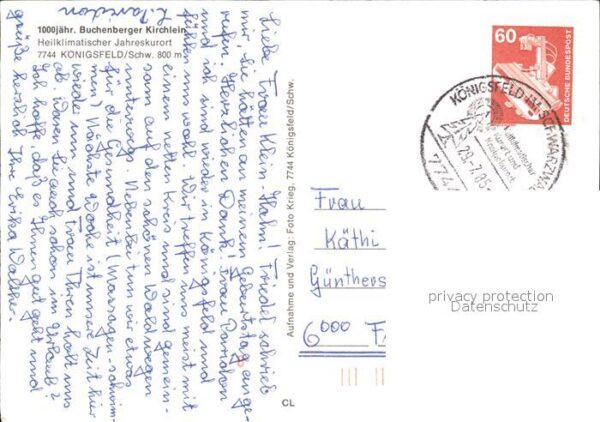 1000jähr. Buchenberger Kirchlein
Heilklimatischer Jahreskurort
7744 KÖNIGSFELD/Schw. 800 m
Liebe Frau Klein-Hahn! Friedel schrieb
mir, Sie hätten an meinem Geburtstag ange-
rufen. Herzlichen Dank! Frau Davidon
und ich sind wieder in Königsfeld und
fühlen uns wohl. Wir treffen uns meist mit
einem netten Kreis und sind gemein-
sam auf den schönen Waldwegen
unterwegs. Nebenbei tun wir etwas
für die Gesundheit (Massagen-schwim-
men) Nächste Woche ist unsere Zeit hier
wieder um und Frau holt uns
ab. Waren Sie auch schon im Urlaub?
Ich hoffe, daß es Ihnen gut geht und
grüße herzlich Ihre Erika
Aufnahme und Verlag: Foto Krieg, 7744 Königsfeld/Schw.
CL
60
DEUTSCHE BUNDESPOST
KÖNIGSFELD IM SCHWARZWALD
Heilklimatischer
Kurort und
Kneippkurort
29.-7.85
7744
Frau
Käthi
Günthers
6000 F
privacy protection
Datenschutz